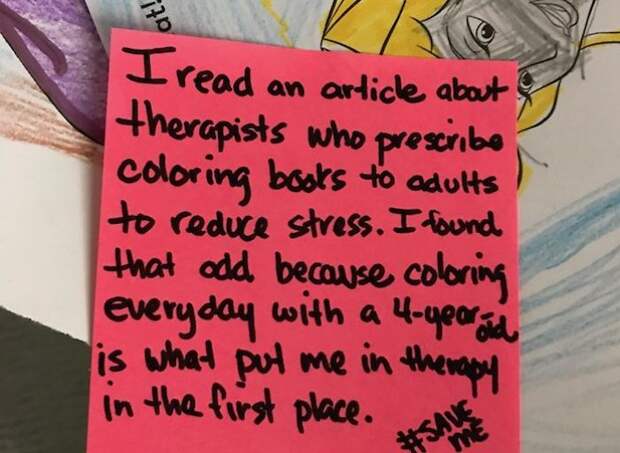 ati
I read an article about
therapists who prescribe
coloring books to adults
to reduce stress. I found
that odd because coloring
everyday with a 4-year-old
is what put me in therapy
in the first place.
#SAVE
ME